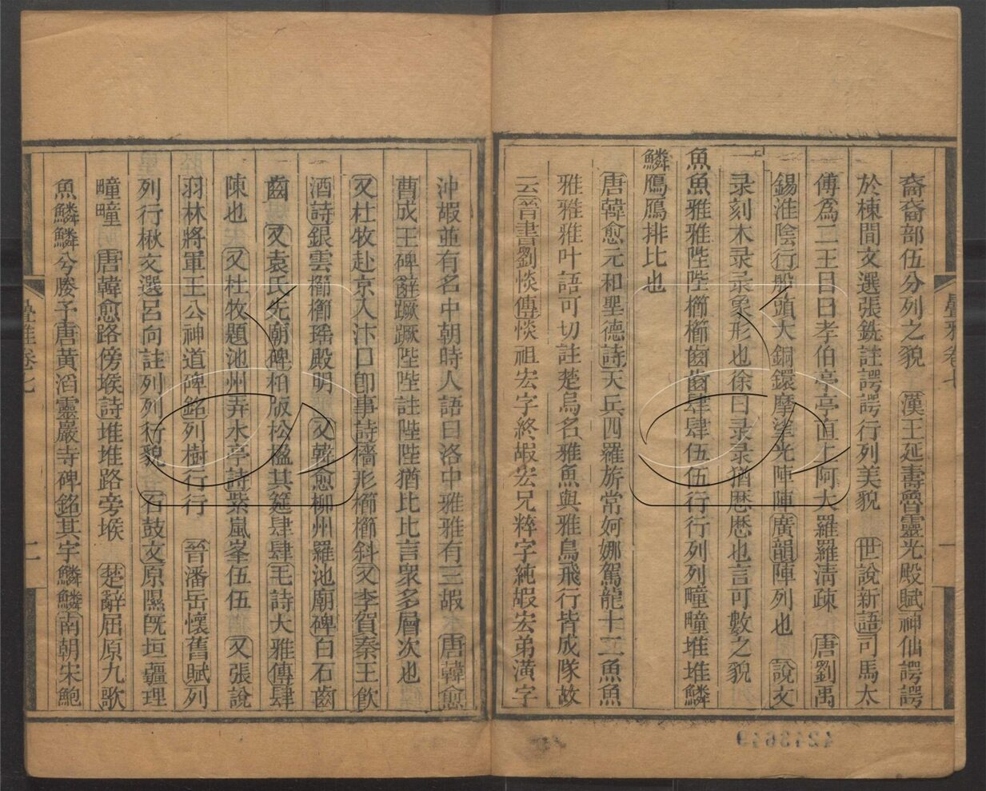 裔裔部伍分列之貌　漢王延壽魯靈光殿賦神仙諤諤
於棟間文選張銑註諤諤行列美貌　世說新語司馬太
傅為二王目曰孝伯亭亭直上阿大羅羅清疎　唐劉禹
錫淮陰行船頭大銅鐶摩挲光陣陣廣韻陣列也　說文
录刻木录录象形也徐曰录录猶歷歷也言可數之貌
魚魚雅雅陛陛櫛櫛齒齒肆肆伍伍行行列列疃疃堆堆鱗
鱗鴈鴈排比也
唐韓愈元和聖德詩天兵四羅旂常婀娜駕龍十二魚魚
雅雅雅叶語可切註楚烏名雅魚與雅鳥飛行皆成隊故
云晉書劉惔傳惔祖宏字終嘏宏兄粹字純嘏宏弟潢字
疊雅卷七
一
沖嘏並有名中朝時人語曰洛中雅雅有三嘏　唐韓愈
曹成王碑辭蹶蹶陛陛註陛陛猶比比言眾多層次也
又杜牧赴京入汴口即事詩檣形櫛櫛斜又李賀秦王飲
酒詩銀雲櫛櫛瑤殿明　又韓愈柳州羅池廟碑白石齒
齒　又袁氏先廟碑柏版松楹其筵肆肆毛詩大雅傳肆
陳也　又杜牧題池州弄水亭詩紫嵐峯伍伍　又張說
羽林將軍王公神道碑銘列樹行行　晉潘岳懷舊賦列
列行楸文選呂向註列列行貌　石鼓文原隰既垣疆理
疃疃　唐韓愈路傍堠詩堆堆路旁堠　楚辭屈原九歌
魚鱗鱗兮媵予唐黃滔靈巖寺碑銘其宇鱗鱗南朝宋鮑
疊雅卷七
二